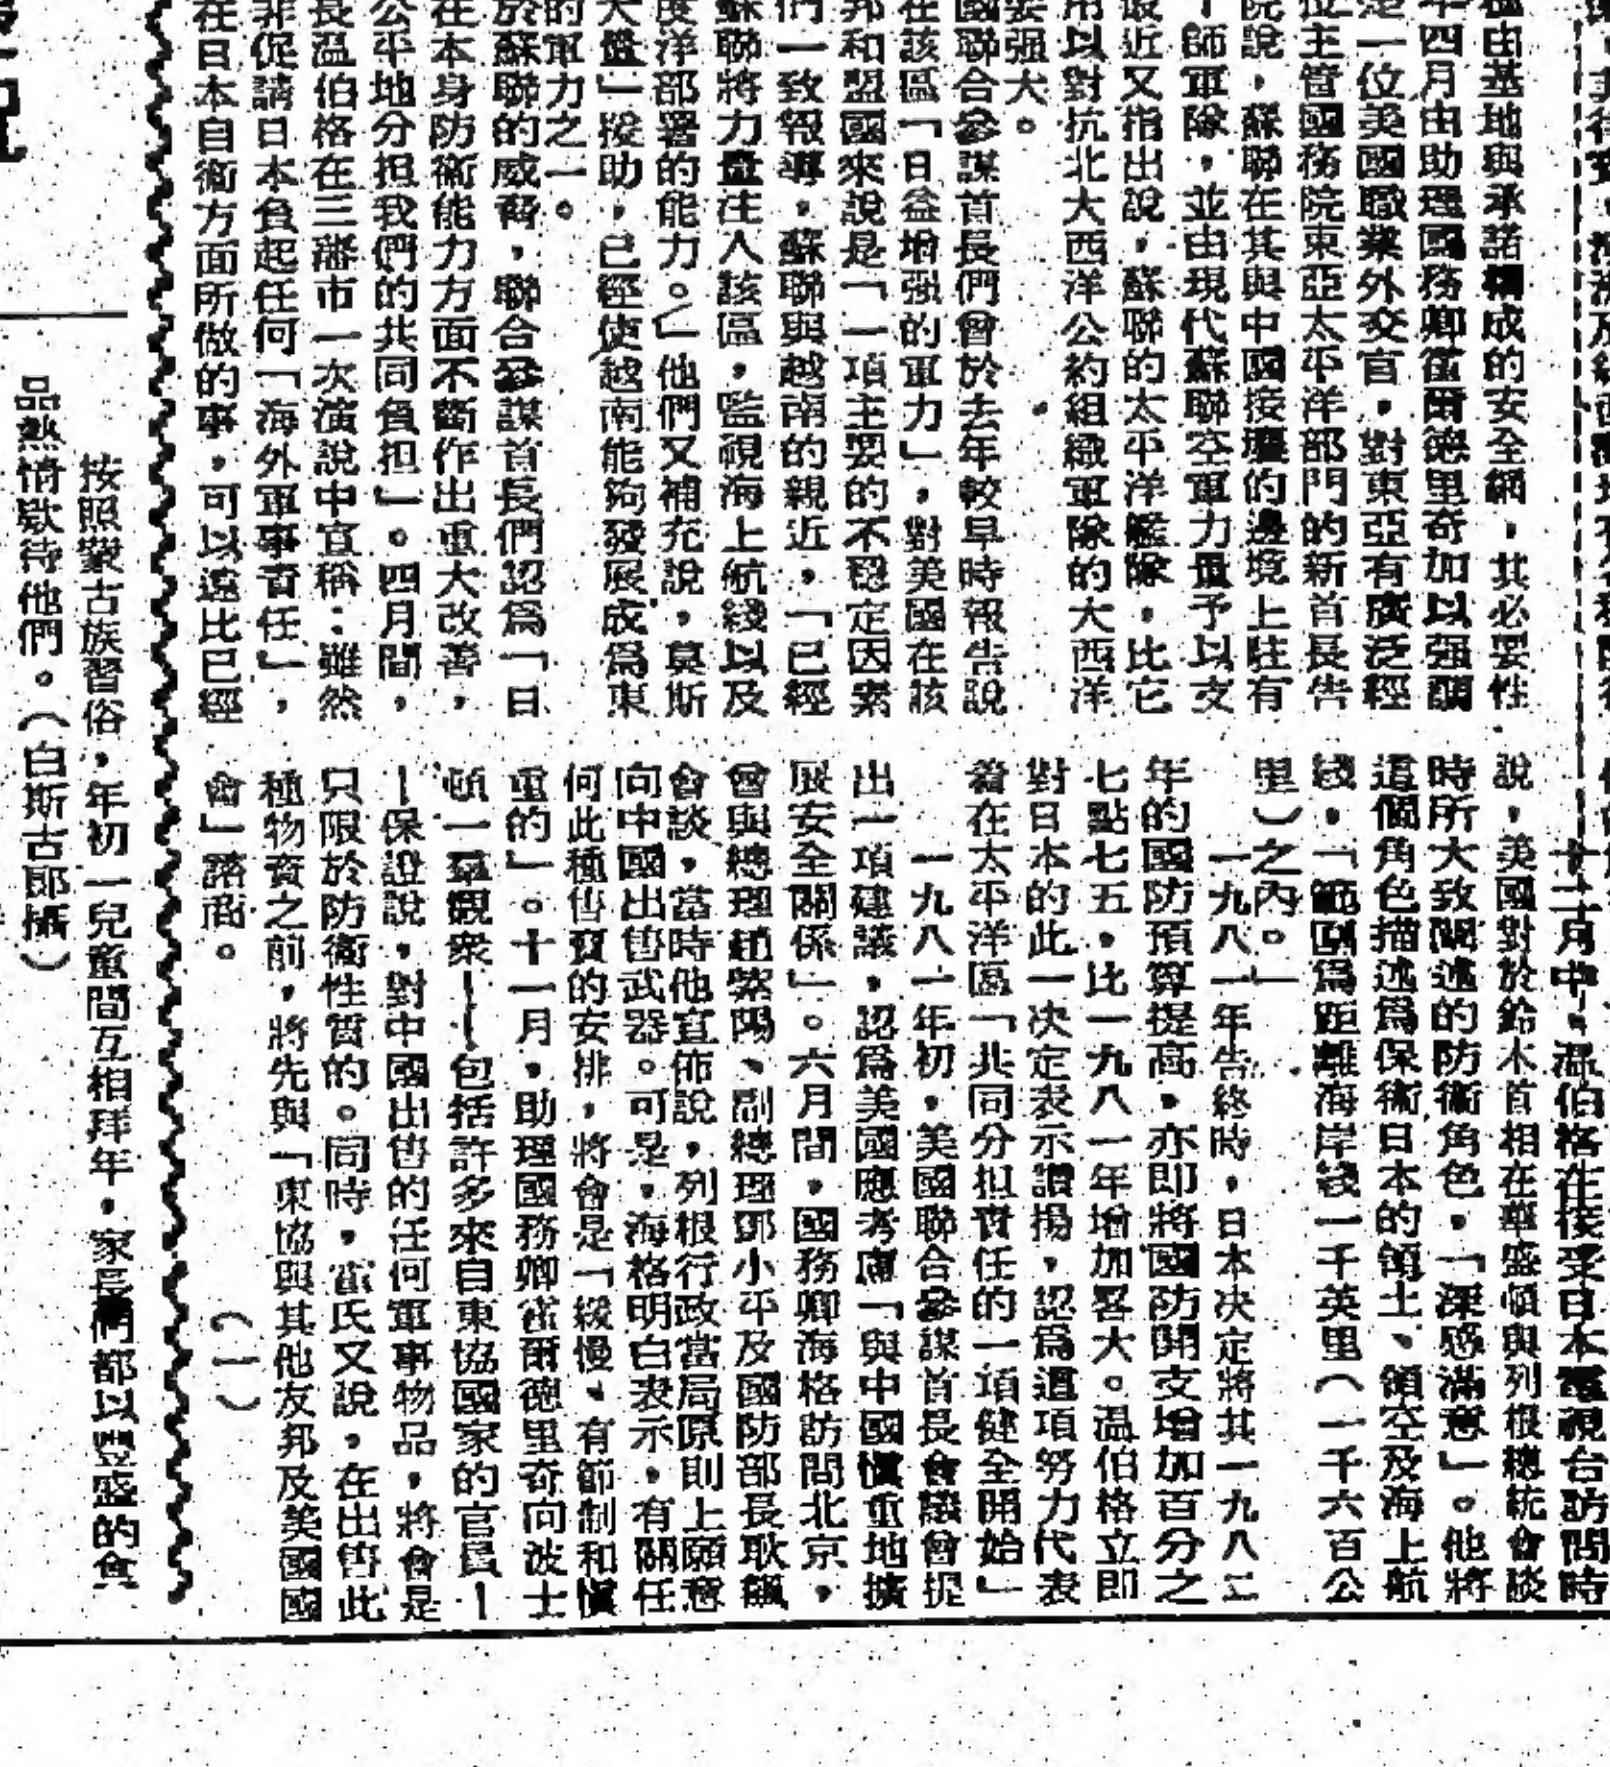 極由基地與承諾構成的安全網，其必要性
年四月由助理國務卿霍爾德里奇加以强調
是一位美國職業外交官，對東亞有廣泛經
位主管國務院東亞太平洋部門的新首長告
院說，蘇聯在其與中國接壤的邊境上駐有
師軍隊，並由現代蘇聯空軍力量予以支
最近又指出說，蘇聯的太平洋艦隊，比它
用以對抗北大西洋公約組織軍隊的大西洋
要强大。
國聯合參謀首長們曾於去年較早時報告說
在該區「日益增强的軍力」，對美國在該
邦和盟國來說是「一項主要的不穩定因素
們一致報導，蘇聯與越南的親近，「已經
蘇聯將力量注入該區，監視海上航綫以及
度洋部署的能力。」他們又補充說，莫斯
大量」援助，已經使越南能夠發展成爲東
的軍力之一。
於蘇聯的威脅，聯合參謀首長們認爲「日
在本身防衞能力方面不斷作出重大改善，
公平地分担我們的共同負担」。四月間，
長溫伯格在三藩市一次演說中宣稱：雖然
非促請日本負起任何「海外軍事責任」，
在日本自衞方面所做的事，可以遠比已經
十二月中，溫伯格在接受日本電視台訪問時
說，美國對於鈴木首相在華盛頓與列根總統會談
時所大致闡述的防衞角色，「深感滿意」。他將
這個角色描述爲保衞日本的領土、領空及海上航
綫，「範圍爲距離海岸綫一千英里（一千六百公
里）之內。」
一九八一年告終時，日本决定將其一九八二
年的國防預算提高，亦即將國防開支增加百分之
七點七五，比一九八一年增加畧大。溫伯格立即
對日本的此一决定表示讚揚，認爲這項努力代表
着在太平洋區「共同分担責任的一項健全開始」
一九八一年初，美國聯合參謀首長會議曾提
出一項建議，認爲美國應考慮「與中國愼重地擴
展安全關係」。六月間，國務卿海格訪問北京，
曾與總理趙紫陽、副總理鄧小平及國防部長耿飇
會談，當時他宣佈說，列根行政當局原則上願意
向中國出售武器。可是，海格明白表示，有關任
何此種售賣的安排，將會是「緩慢、有節制和愼
重的」。十一月，助理國務卿霍爾德里奇向波士
頓一羣觀衆——包括許多來自東協國家的官員—
—保證說，對中國出售的任何軍事物品，將會是
只限於防衞性質的。同時，霍氏又說，在出售此
種物資之前，將先與「東協與其他友邦及美國國
會」諮商。
（一）
按照蒙古族習俗，年初一兒童間互相拜年，家長們都以豐盛的食
品熱情欵待他們。（白斯古郎攝）